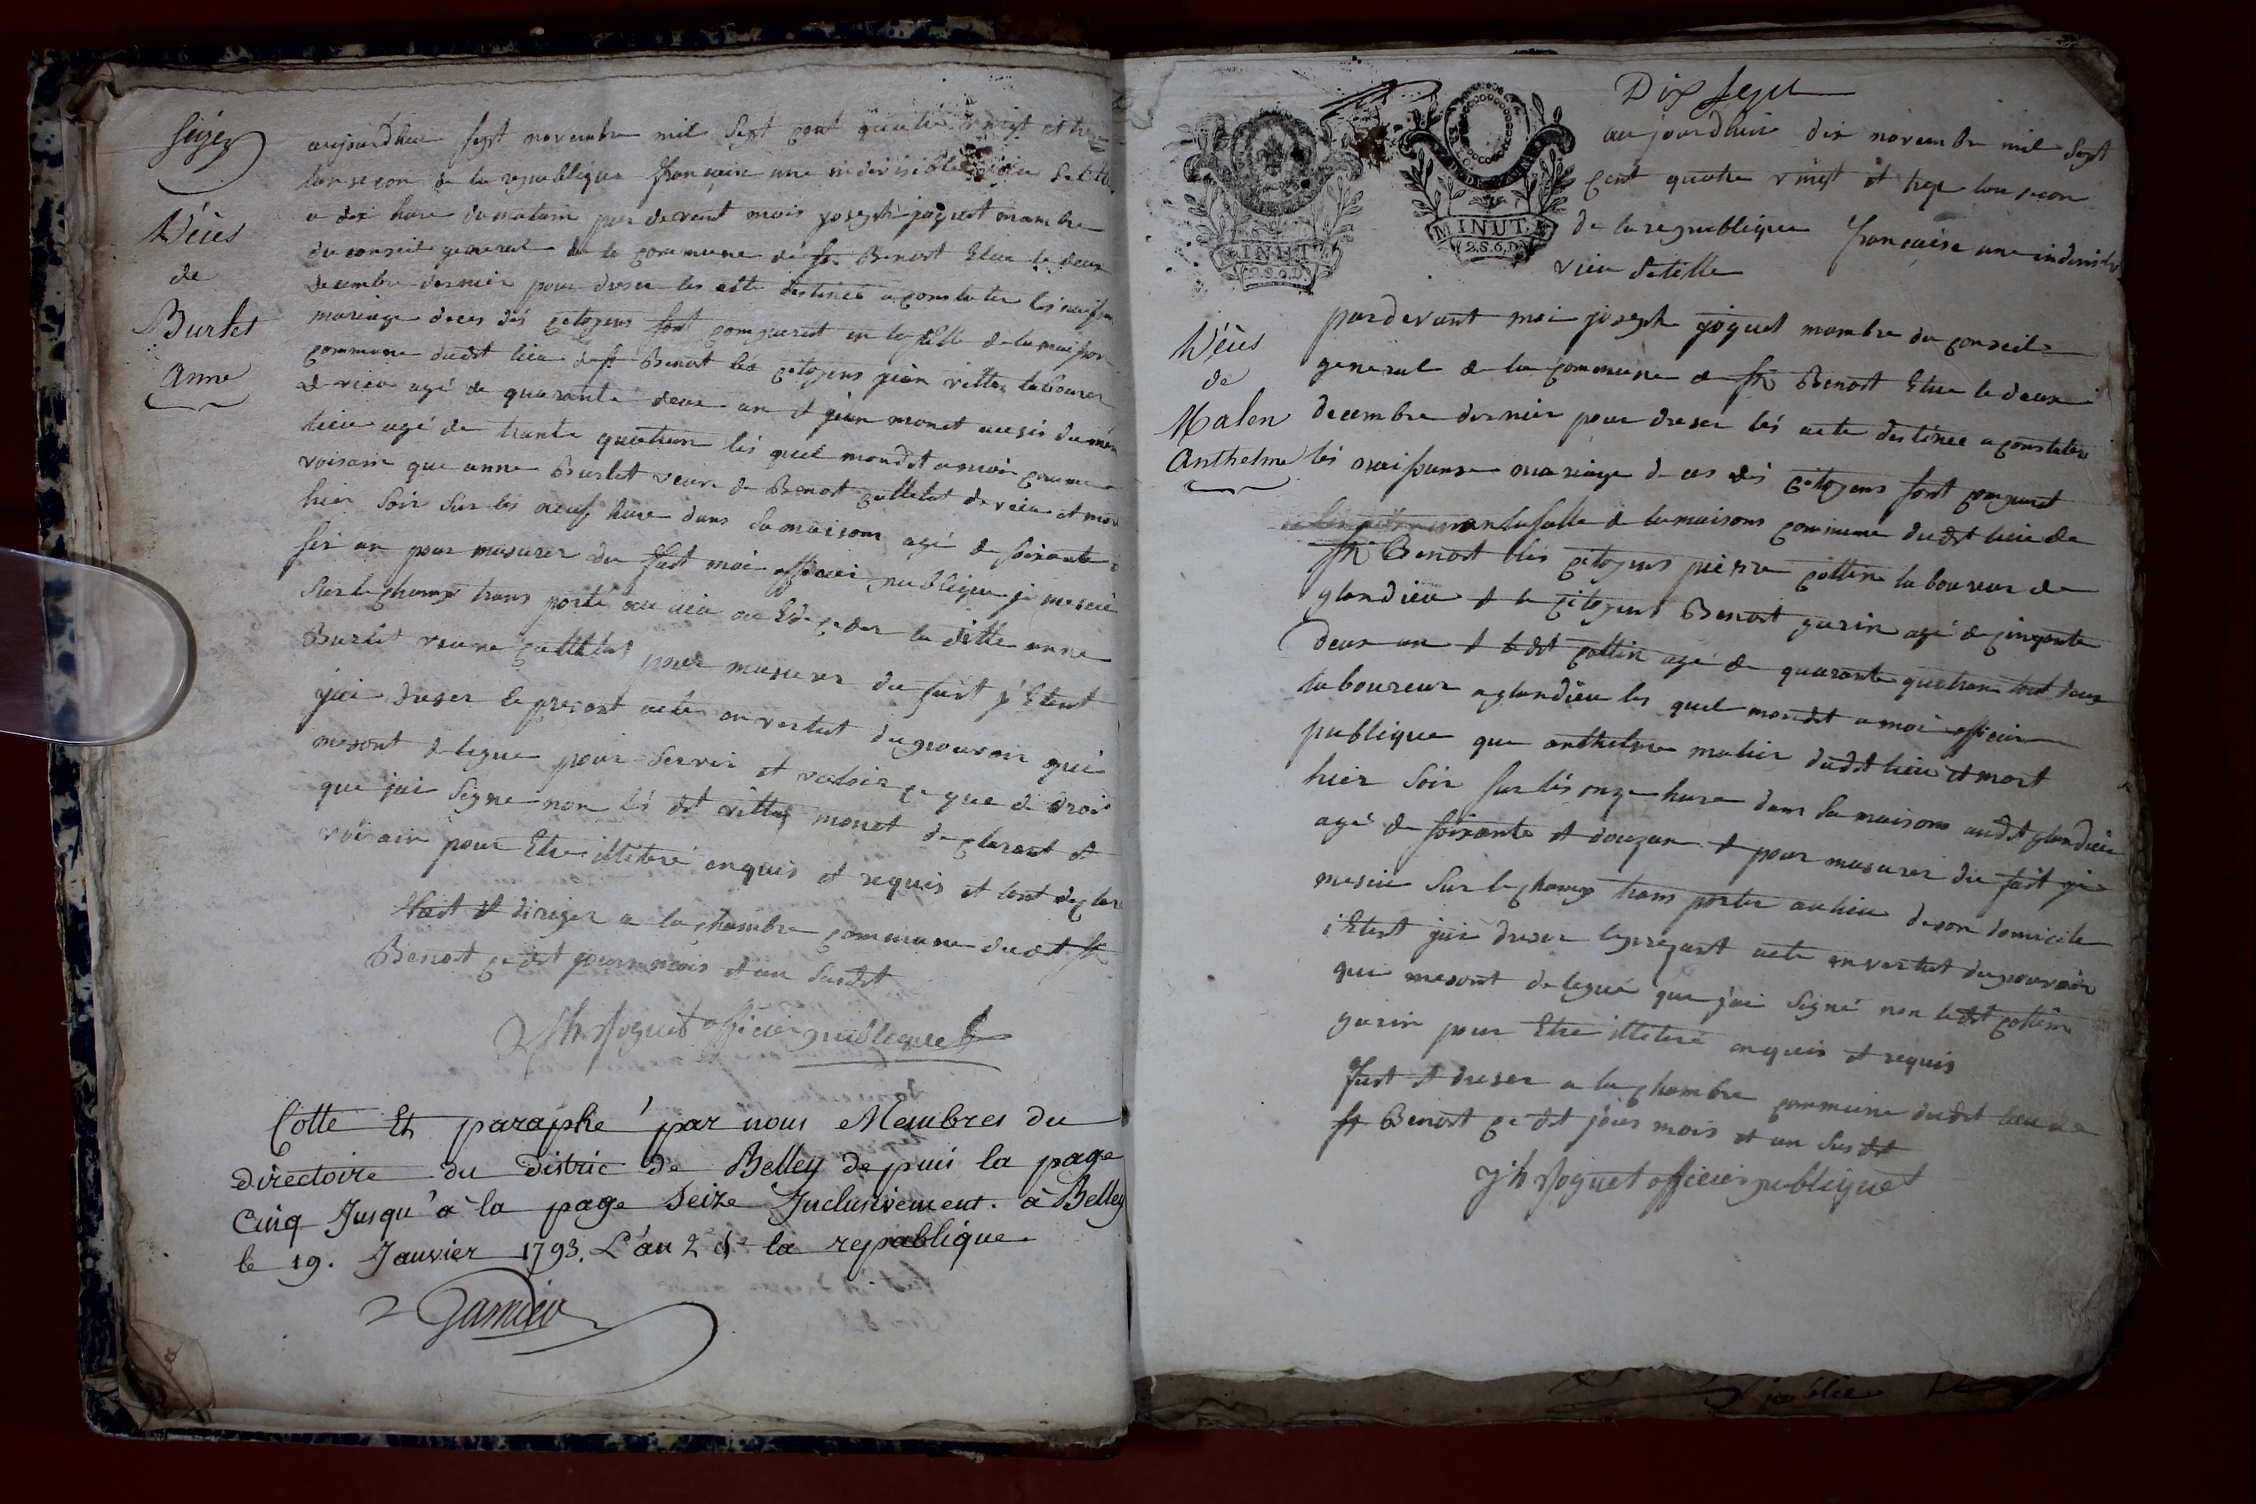 seize
Décès
de
Burlet
Anne
aujourdhui sept novembre mil sept cent quatre vingt et treze
lan segon de la republique francaise une indivisible
a dix hure du matain par devant mois joseph joguet mambre
du conseil general de la commune de st Benoit Elue le deux
decembre dernier pour dreser les acte destinée a constater les naissan
mariage deces dés citoyens sont comparut en la salle de la maison
commune dudit lieu de st Benoit les citoyens jean vittes laboureur
de rieu agé de quarante deux an et jean monet aussi du mem
lieu agé de trante quatran lés quel mondit a moi comme
voisain que anne Burlet veuve de Benoit de rieu et mort
hier soir sur lés neuf hure dans sa maison agé de soixante
sis an pour masurer du fait moi officier publique je mesuis
sur le champ trans porté au lieu la ditte anne
Burlet veuve pour masurer du fait j'Etent
jai dreser le present acte en vertut du pouvoir qui
mesont delegue pour servir et valoir ce que de droit
que jai signe non lés dit vittes monet declarant et
voisain pour Etre illiteré enquis et requis et lont declaré
Fait et diriger a la chambre commune dudit st
Benoit ce dit jours mois et an susdit
Jh Joguet officier publique
Cotté Et paraphé par nous Membres du
directoire du distric de Belley depuis la page
cinq Jusqu'à la page seize Inclusivement. à Belley
le 19. Janvier 1793. L'an 2e de la republique
Garnier
Dix sept
MINUT.
2.S.6.D
MINUT.
2.S.6.D
aujourdhui dix novembre mil sept
cent quatre vingt et treze lan segon
de la republique francaise une indivisible
Décès
de
Malen
Anthelme
pardevant moi joseph joguet mambre du conseil
general de la commune de st Benoit Elue le deux
decembre dernier pour dreser lés acte destinée a constater
lés naissanse mariage deces dés citoyens sont comparut
en la salle de la maisons commune dudit lieu de
st Benoit lés citoyens pierre gottin laboureur de
glandieu et le citoyens Benoit garin agé de cinquante
deux an et ledit gottin agé de quarante quatran tout deux
laboureur a glandieu les quel mondit a moi officier
publique que anthelme malin dudit lieu et mort
hier soir sur lés onze hure dans sa maisons audit glandieu
agé de soixante et douzan et pour masurer du fait je
mesuis sur le champ trans porter au lieu de son domicile
j'Etent jai dreser le present acte en vertut du pouvoir
qui mesont delegué que jai signé non ledit gottin
garin pour Etre illiteré enquis et requis
Fait et dreser a la chambre commune dudit lieu de
st Benoit ce dit jours mois et an susdit
Jh Joguet officier publique